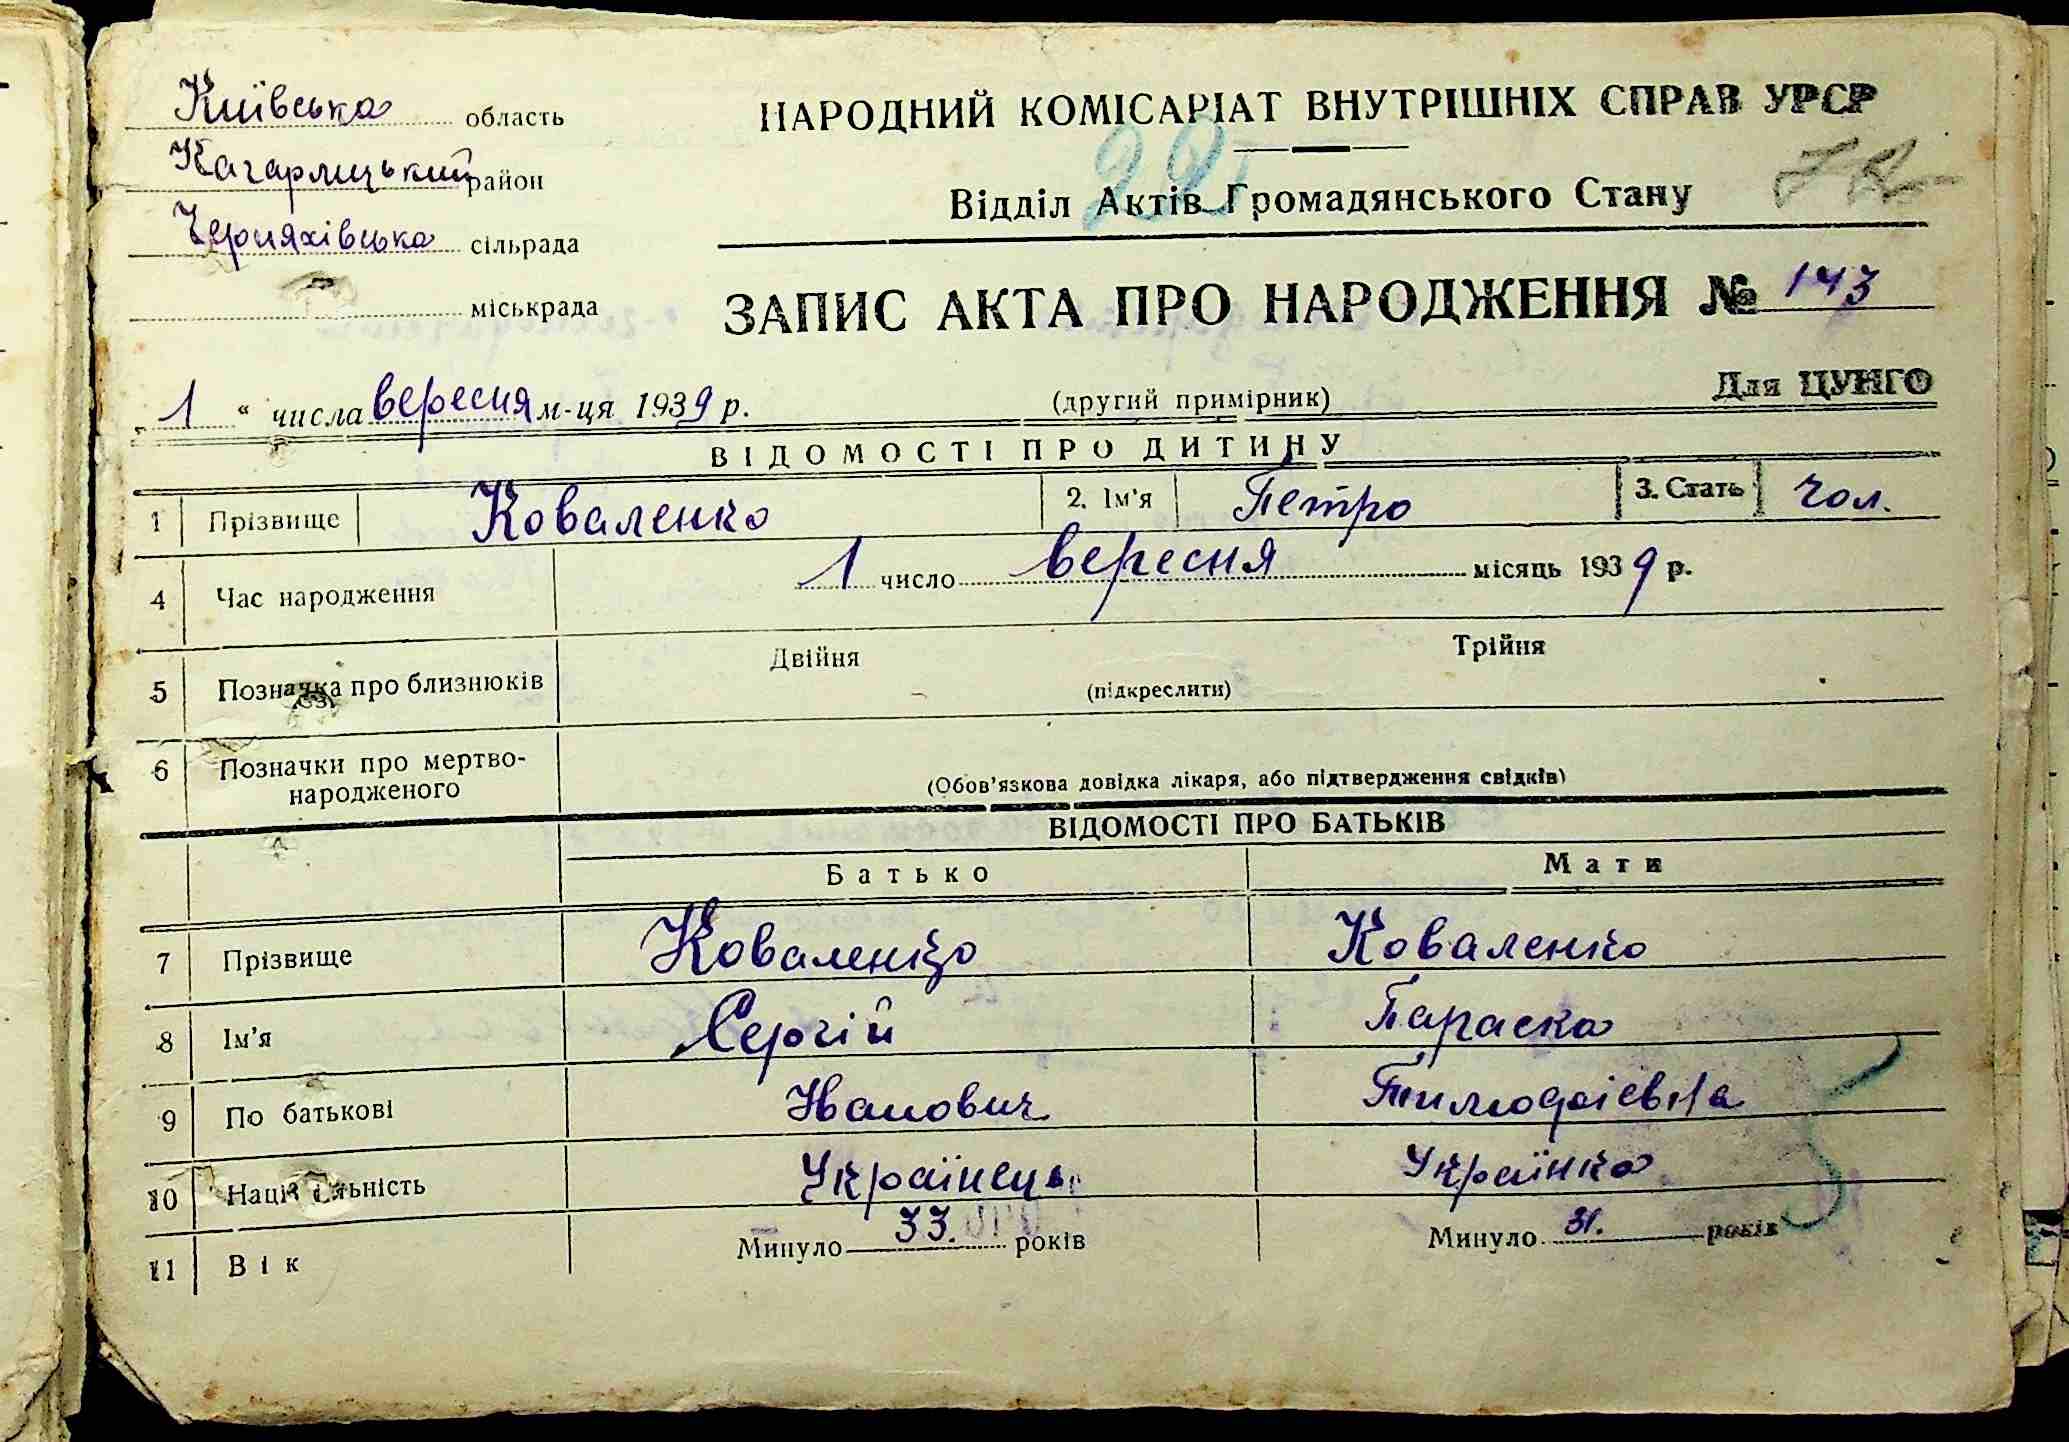 Київська область
Кагарлицький район
Черняхівська сільрада
міськрада
НАРОДНИЙ КОМІСАРІАТ ВНУТРІШНІХ СПРАВ УРСР
22
Відділ Актів Громадянського Стану
ЗАПИС АКТА ПРО НАРОДЖЕННЯ № 143
1 " числа вересня м-ця 1939 р.
(другий примірник)
Для ЦУНГО
ВІДОМОСТІ ПРО ДИТИНУ
1 Прізвище Коваленко 2. Ім'я Петро 3. Стать чол.
4 Час народження 1 число вересня місяць 1939 р.
5 Позначка про близнюків Двійня Трійня
(підкреслити)
6 Позначки про мертво-
народженого
(Обов'язкова довідка лікаря, або підтвердження свідків)
ВІДОМОСТІ ПРО БАТЬКІВ
Батько Мати
7 Прізвище Коваленко Коваленко
8 Ім'я Сергій Параска
9 По батькові Иванович Тимофієвна
10 Національність Українець Українка
11 Вік Минуло 33. років Минуло 31. років